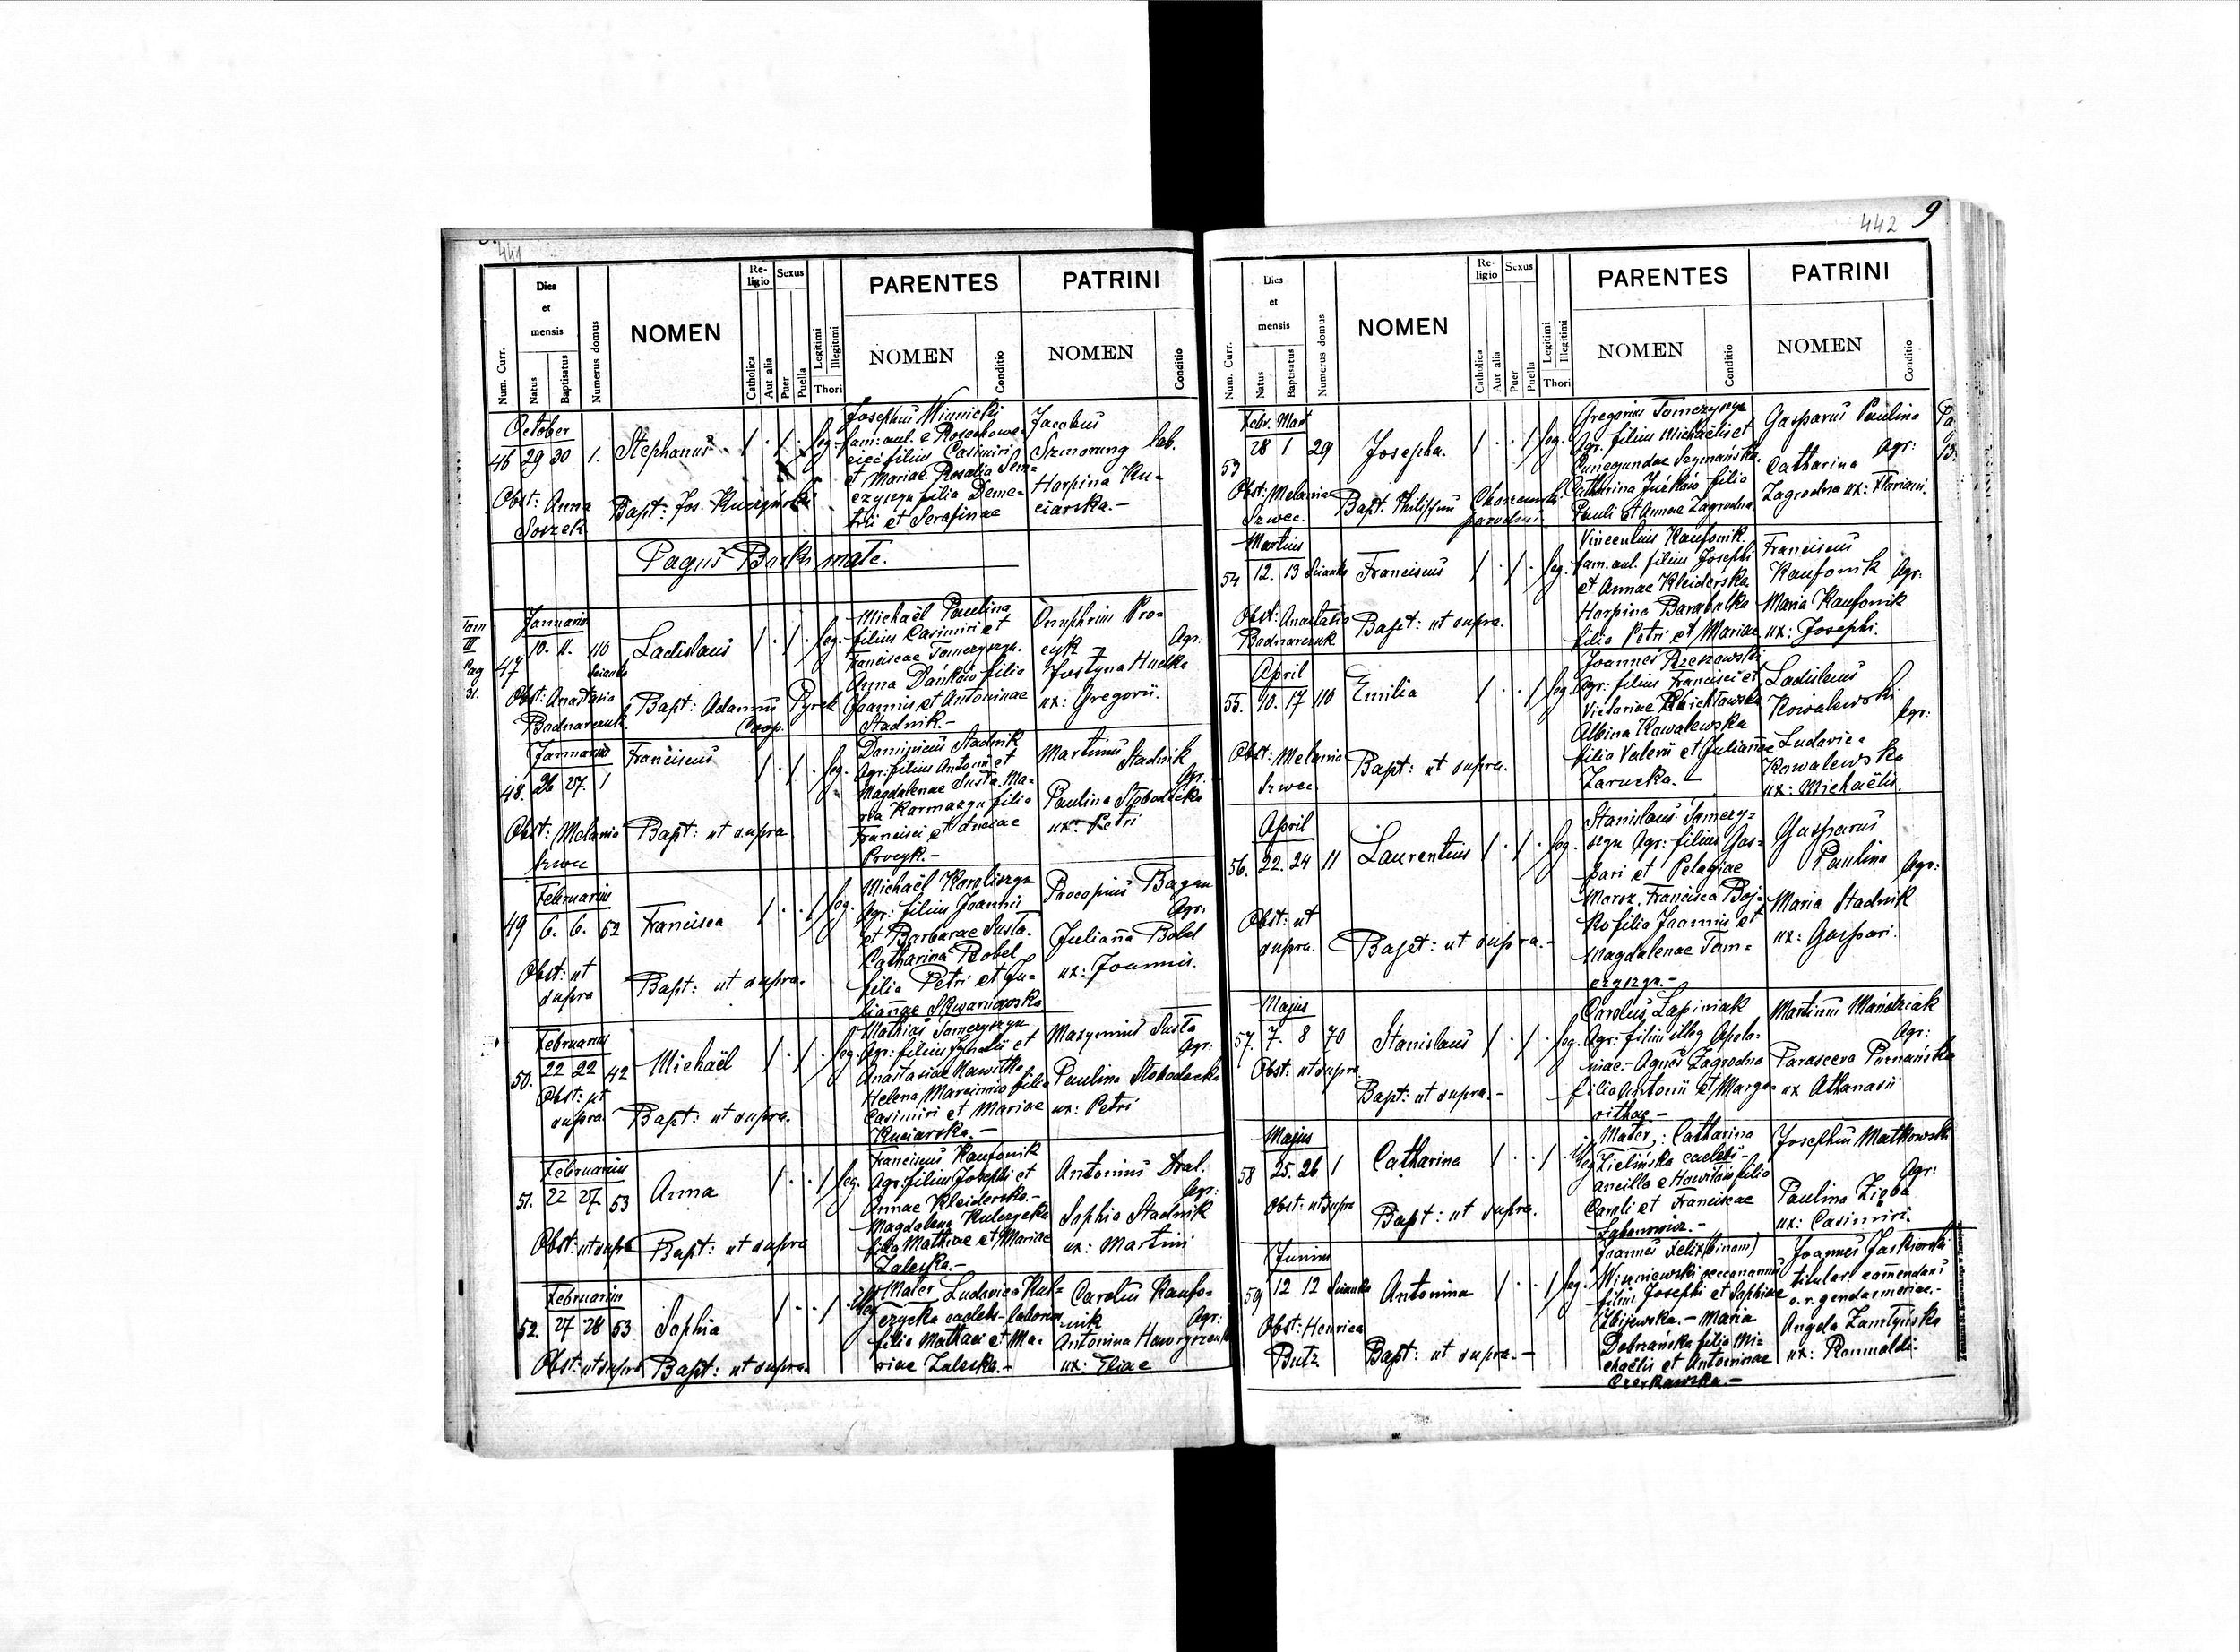 441
Dies et mensis
NOMEN
Religio
Sexus
PARENTES
PATRINI
Num. Curr.
Natus
Baptisatus
Numerus domus
Catholica
Aut alia
Puer
Puella
Legitimi
Illegitimi
Thori
NOMEN
Conditio
NOMEN
Conditio
October
46 29 30 1. Stephanus leg.
Josephus Winnicki
fam: aul. e Rosochowa-
ciec filius Casimiri
et Mariae. Rosalia Sem-
czyszyn filia Deme-
trii et Serafinae
Jacobus
Szmorung lab.
Harpina Ku-
ciarska.-
Obst: Anna
Soszek
Bapt: Jos. Kuczyński
Pagus Borki małe.
Tom
III
Pag
31.
Januarius
47 10. 11. 110 Ladislaus leg.
Michaël Paulina
filius Casimiri et
Franciscae Tomczyszyn.
Anna Dańków filia
Joannis et Antoninae
Stadnik.-
Onuphrius Pro-
cyk Agr:
Justyna Hucka
ux: Gregorii.
Obst: Anastasia
Bodnarczuk
Bapt: Adamus Pyrek
Coop.
Januarius
48. 26 27. 1 Franciscus leg.
Dominicus Stadnik
Agr: filius Antonii et
Magdalenae Susta. Ma-
ria Karmazyn filia
Francisci et Luciae
Procyk.-
Martinus
Stadnik
Agr.
Paulina Słobodecka
ux: Petri
Obst: Melania
Szwec
Bapt: ut supra
Februarius
49 6. 6. 52 Francisca leg.
Michaël Karoliszyn
Agr: filius Joannis
et Barbarae Susta.
Catharina Bobel
filia Petri et Ju-
liannae Skwaniowska
Procopius Bagan
Agr:
Julianna Bobel
ux: Joannis.
Obst: ut
supra
Bapt: ut supra.
Februarius
50. 22 22 42 Michaël leg.
Mathias Tomczyszyn
Agr: filius Ignatii et
Anastasiae Nawitka
Helena Marcinów filia
Casimiri et Mariae
Kuciarska.-
Maxymius Susta
Agr:
Paulina Słobodecka
ux: Petri
Obst: ut
supra.
Bapt: ut supra.
Februarius
51. 22 27 53 Anna leg.
Franciscus Kaufonik
Agr: filius Josephi et
Annae Kleiderska.-
Magdalena Kulczycka
filia Mathiae et Mariae
Zaleska.-
Antonius Dral.
Agr:
Sophia Stadnik
ux: Martini
Obst: ut supra
Bapt: ut supra
Februarius
52. 27 28 53 Sophia
Mater Ludovica Kul-
czycka caelebs-laborans
filia Matthaei et Ma-
riae Zaleska.-
Carolus Kaufo-
nik Agr:
Antonina Haworyszcuk
ux: Eliae
Obst: ut supra
Bapt: ut supra
442 9
Dies et mensis
NOMEN
Religio
Sexus
PARENTES
PATRINI
Num. Curr.
Natus
Baptisatus
Numerus domus
Catholica
Aut alia
Puer
Puella
Legitimi
Illegitimi
Thori
NOMEN
Conditio
NOMEN
Conditio
Febr. Mart
53 28 1 29 Josepha. leg.
Gregorius Tomczyszyn
Agr. filius Michaëlis et
Cunegundae Szymańska.
Catharina Juźków filia
Pauli et Annae Zagrodna
Gasparus Paulina
Agr:
Catharina
Zagrodna ux: Floriani.
Obst: Melania
Szwec.
Bapt. Philippus
parochus
Martius
54 12. 13 Franciscus leg.
Vincentius Kaufonik.
fam. aul. filius Josephi
et Annae Kleiderska
Harpina Barabalka
filia Petri et Mariae
Franciscus
Kaufonik Agr:
Maria Kaufonik
ux: Josephi.
Obst: Anastasia
Bodnarczuk
Bapt: ut supra.
April
55. 10. 17 110 Emilia leg.
Joannes Rzeszowski
Agr: filius Francisci et
Victoriae
Albina Kowalewska
filia Valerii et Juliannae
Zarucka.-
Ladislaus
Kowalewski
Agr:
Ludovica
Kowalewska
ux: Michaëlis.
Obst: Melania
Szwec
Bapt: ut supra.
April
56. 22. 24 11 Laurentius leg.
Stanislaus Tomczy-
szyn Agr: filius Gas-
pari et Pelagiae
Moroz. Francisca Boj-
ko filia Joannis et
Magdalenae Tom-
czyszyn.-
Gasparus
Paulina Agr:
Maria Stadnik
ux: Gaspari.
Obst: ut
supra.
Bapt: ut supra.-
Majus
57. 7. 8 70 Stanislaus leg.
Carolus Łapiniak
Agr: filius illeg Apolo-
niae.- Agnes Zagrodna
filia Antonii et Marga-
rithae -
Martinus Mańdziak
Agr:
Parasceva Poznańska
ux Athanasii
Obst: ut supra
Bapt: ut supra.-
Majus
58 25. 26 1 Catharina illeg
Mater: Catharina
Zielińska caelebs-
ancilla e Howiłów filia
Caroli et Franciscae
Łabanowicz.-
Josephus Matkowski
Agr:
Paulina Zięba
ux: Casimiri.
Obst: ut supra
Bapt: ut supra.
Junius
59 12 12 Antonina leg.
Joannes Felix (binom)
Wiszniewski oeconomus
filius Josephi et Sophiae
Zbijewska.- Maria
Dobrzańska filia Mi-
chaëlis et Antoninae
Czerkawska.-
Joannes Jaskierski
titular: comendans
c.r. gendarmeriae.-
Angela Zamłyńska
ux: Romualdi.
Obst: Henrica
Butz.
Bapt: ut supra.-